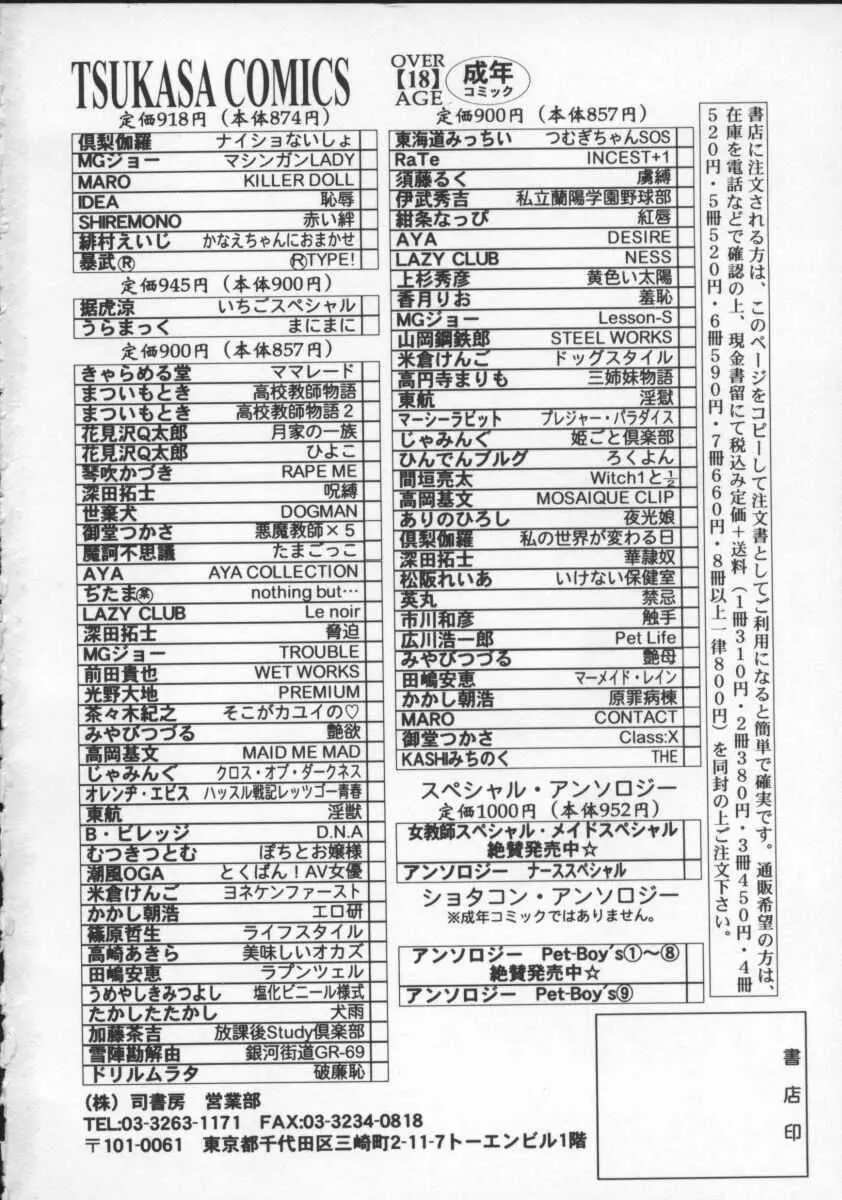 TSUKASA COMICS
OVER
【18】
AGE
成年
コミック
定価918円（本体874円）
倶梨伽羅 ナイショないしょ
MGジョー マシンガンLADY
MARO KILLER DOLL
IDEA 恥辱
SHIREMONO 赤い絆
緋村えいじ かなえちゃんにおまかせ
暴武Ⓡ ⓇTYPE!
定価945円（本体900円）
据虎涼 いちごスペシャル
うらまっく まにまに
定価900円（本体857円）
きゃらめる堂 ママレード
まついもとき 高校教師物語
まついもとき 高校教師物語２
花見沢Q太郎 月家の一族
花見沢Q太郎 ひよこ
琴吹かづき RAPE ME
深田拓士 呪縛
世棄犬 DOGMAN
御堂つかさ 悪魔教師×５
魔訶不思議 たまごっこ
AYA AYA COLLECTION
ぢたま㊝ nothing but…
LAZY CLUB Le noir
深田拓士 脅迫
MGジョー TROUBLE
前田貴也 WET WORKS
光野大地 PREMIUM
茶々木紀之 そこがカユイの♡
みやびつづる 艶欲
高岡基文 MAID ME MAD
じゃみんぐ クロス・オブ・ダークネス
オレンヂ・エビス ハッスル戦記レッツゴー青春
東航 淫獣
B・ビレッジ D.N.A
むつきつとむ ぽちとお嬢様
潮風OGA とくばん！AV女優
米倉けんご ヨネケンファースト
かかし朝浩 エロ研
篠原哲生 ライフスタイル
高崎あきら 美味しいオカズ
田嶋安恵 ラプンツェル
うめやしきみつよし 塩化ビニール様式
たかしたたかし 犬雨
加藤茶吉 放課後Study倶楽部
雪陣勘解由 銀河街道GR-69
ドリルムラタ 破廉恥
定価900円（本体857円）
東海道みっちい つむぎちゃんSOS
RaTe INCEST+1
須藤るく 虜縛
伊武秀吉 私立蘭陽学園野球部
紺条なっぴ 紅唇
AYA DESIRE
LAZY CLUB NESS
上杉秀彦 黄色い太陽
香月りお 羞恥
MGジョー Lesson-S
山岡鋼鉄郎 STEEL WORKS
米倉けんご ドッグスタイル
高円寺まりも 三姉妹物語
東航 淫獄
マーシーラビット プレジャー・パラダイス
じゃみんぐ 姫ごと倶楽部
ひんでんブルグ ろくよん
間垣亮太 Witch1と½
高岡基文 MOSAIQUE CLIP
ありのひろし 夜光娘
倶梨伽羅 私の世界が変わる日
深田拓士 華隷奴
松阪れいあ いけない保健室
英丸 禁忌
市川和彦 触手
広川浩一郎 Pet Life
みやびつづる 艶母
田嶋安恵 マーメイド・レイン
かかし朝浩 原罪病棟
MARO CONTACT
御堂つかさ Class:X
KASHIみちのく THE
スペシャル・アンソロジー
定価1000円（本体952円）
女教師スペシャル・メイドスペシャル
絶賛発売中☆
アンソロジー ナーススペシャル
ショタコン・アンソロジー
※成年コミックではありません。
アンソロジー Pet-Boy's①〜⑧
絶賛発売中☆
アンソロジー Pet-Boy's⑨
書店に注文される方は、このページをコピーして注文書としてご利用になると簡単で確実です。通販希望の方は、
在庫を電話などで確認の上、現金書留にて税込み定価＋送料（１冊310円・２冊380円・３冊450円・４冊
520円・５冊520円・６冊590円・７冊660円・８冊以上一律800円）を同封の上ご注文下さい。
書店印
（株）司書房 営業部
TEL:03-3263-1171 FAX:03-3234-0818
〒101-0061 東京都千代田区三崎町2-11-7トーエンビル1階